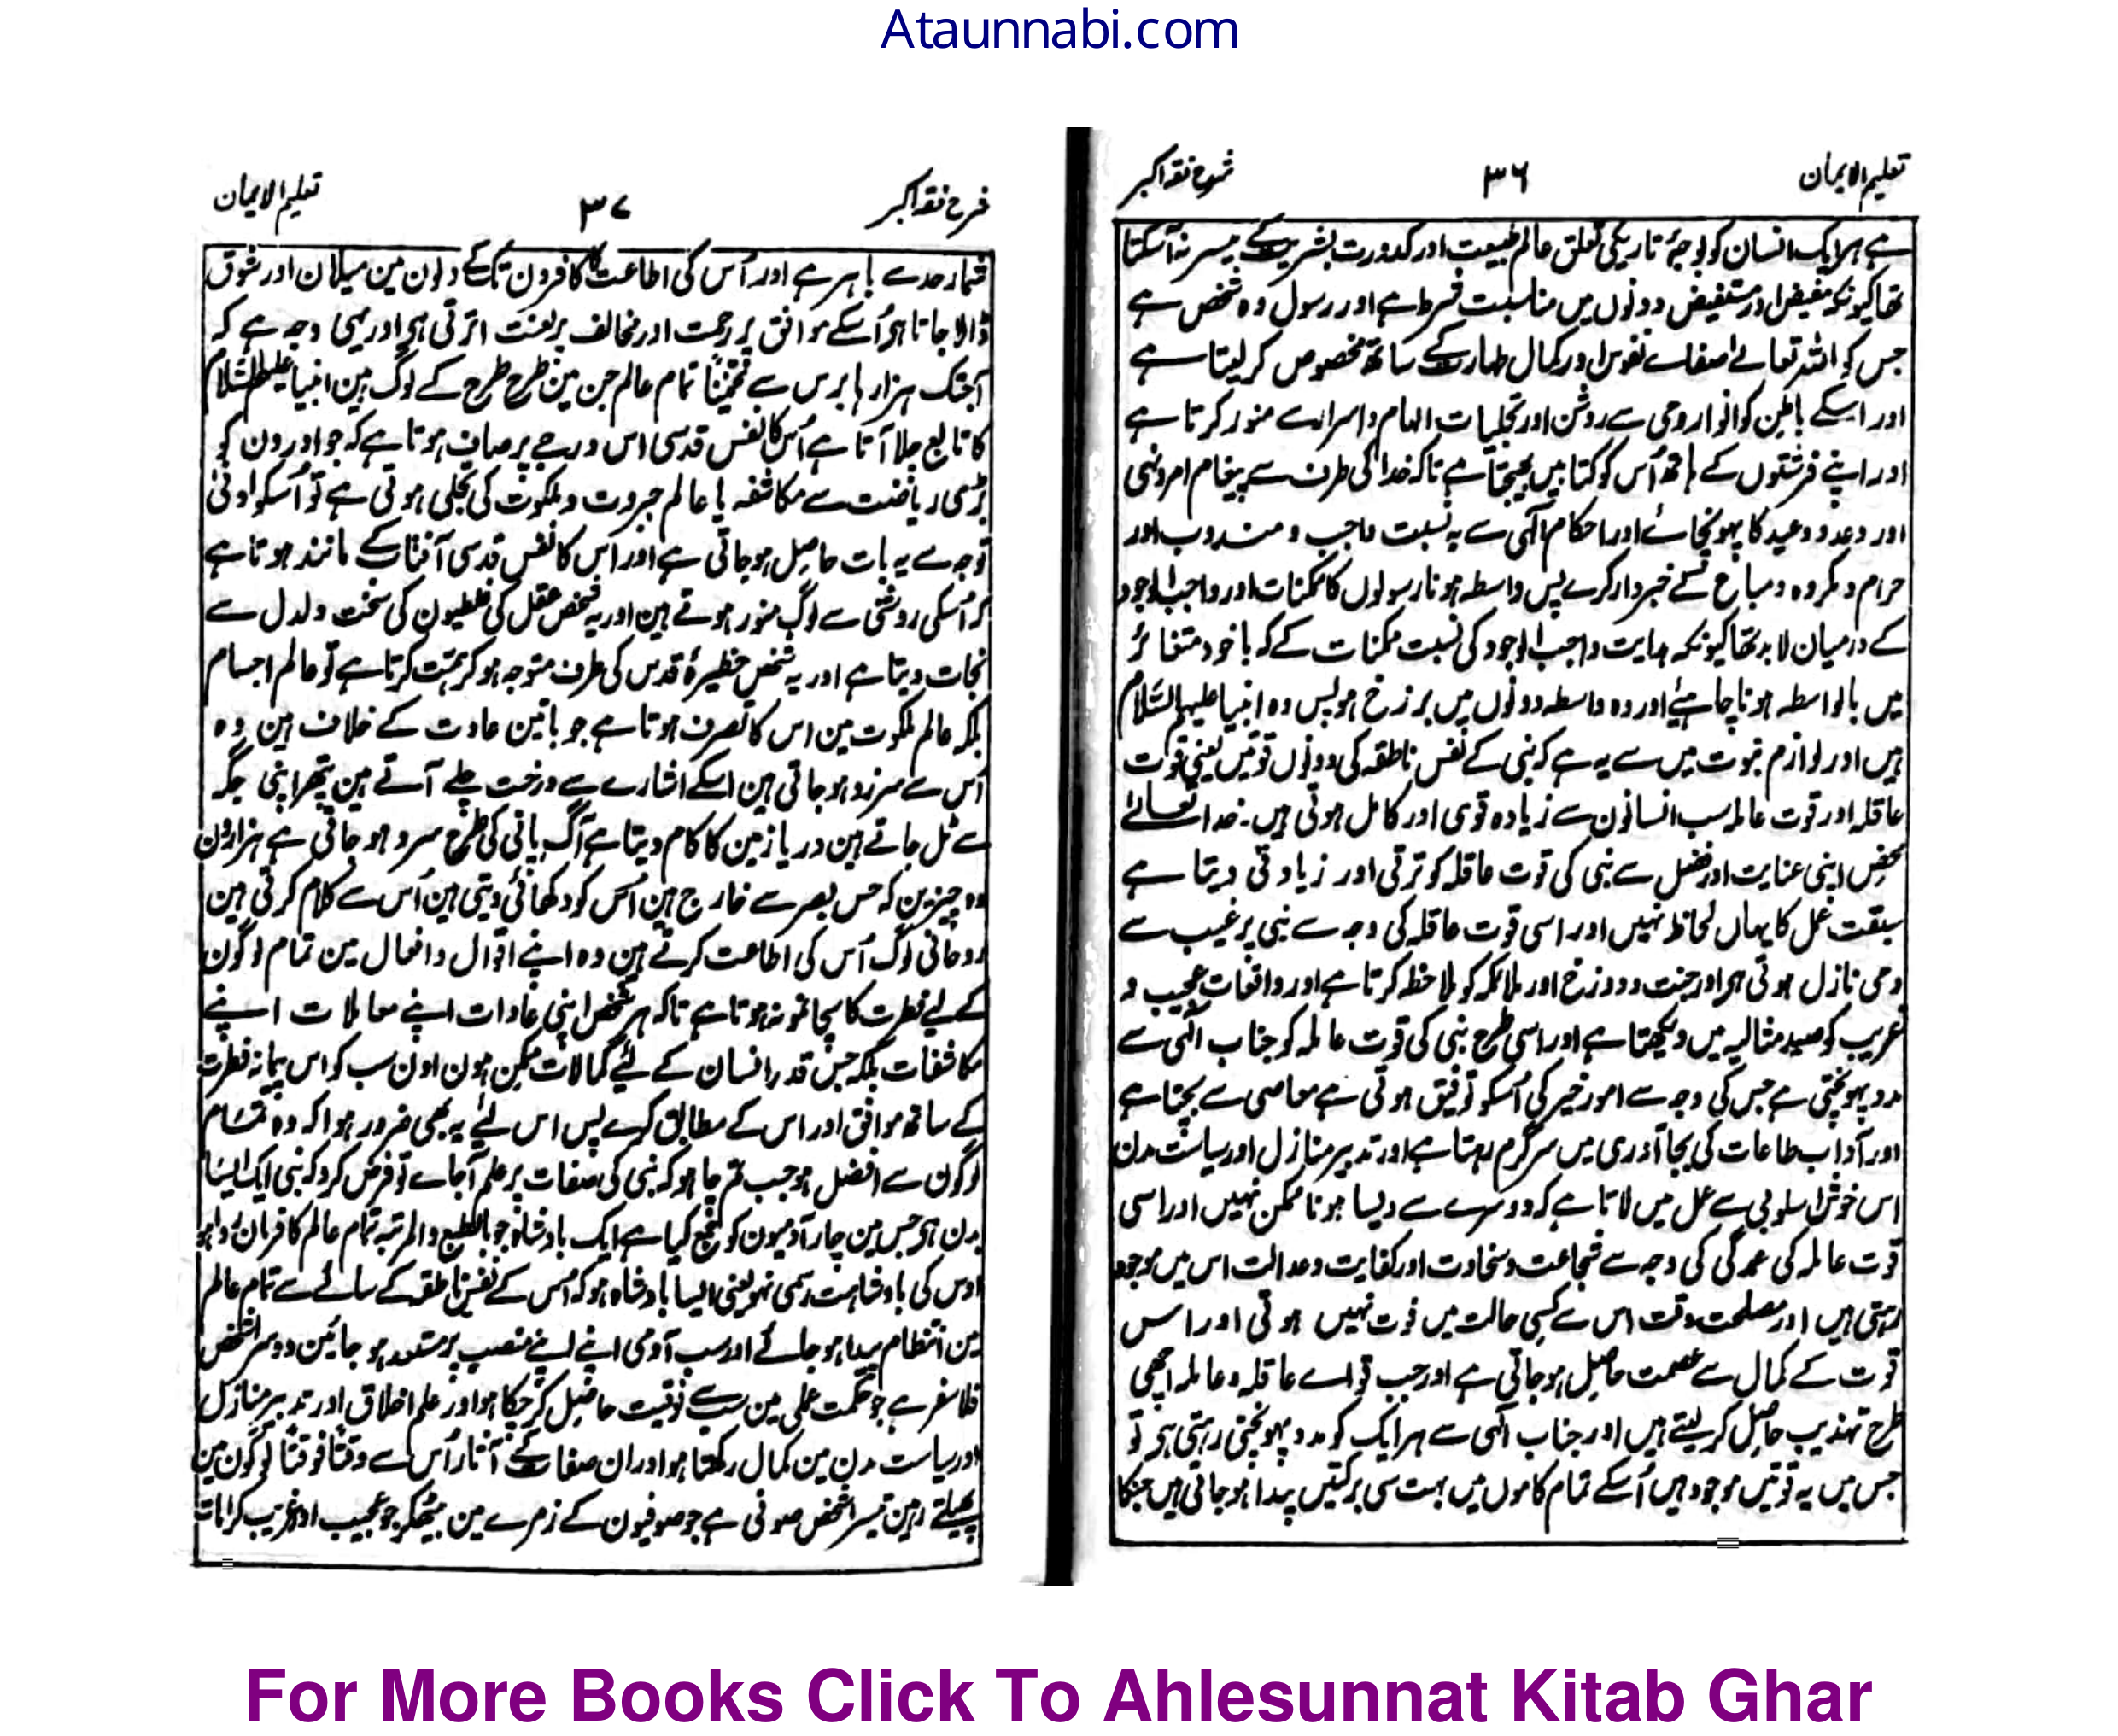 Ataunnabi.com
تعلیم الایمان ۳۶ شرح فقہ اکبر
ہے ہر ایک انسان کو بوجۂ تاریکی تعلق عالم طبیعت اور کدورت بشریت کے میسر نہ آسکتا
تھا کیونکہ مفیض اور مستفیض دونوں میں مناسبت شرط ہے اور رسول وہ شخص ہے
جس کو اللہ تعالے اصفاے نفوس اور کمال طہارت کے ساتھ مخصوص کر لیتا ہے
اور اسکے باطن کو انوار وحی سے روشن اور تجلیات الہام و اسرار سے منور کرتا ہے
اور اپنے فرشتوں کے ہاتھ اُس کو کتابیں بھیجتا ہے تاکہ خدا کی طرف سے پیغام امر ونہی
اور وعد و وعید کا پہونچائے اور احکام الٰہی سے بہ نسبت واجب و مندوب اور
حرام و مکروہ و مباح کے خبردار کرے پس واسطہ ہونا رسولوں کا ممکنات اور واجب الوجود
کے درمیان لا بد تھا کیونکہ ہدایت واجب الوجود کی نسبت ممکنات کے کہ باخود متغائر
ہیں بالواسطہ ہونا چاہیئے اور وہ واسطہ دونوں میں برزخ ہو پس وہ انبیا علیہم السّلام
ہیں اور لوازم نبوت میں سے یہ ہے کہ نبی کے نفس ناطقہ کی دونوں قوتیں یعنی قوت
عاقلہ اور قوت عاملہ سب انسانوں سے زیادہ قوی اور کامل ہوتی ہیں۔ خدا تعالےٰ
محض اپنی عنایت اور فضل سے نبی کی قوت عاقلہ کو ترقی اور زیادتی دیتا ہے
سبقت عمل کا یہاں لحاظ نہیں اور اسی قوت عاقلہ کی وجہ سے نبی پر غیب سے
وحی نازل ہوتی ہر اور جنت و دوزخ اور ملائکہ کو ملاحظہ کرتا ہے اور واقعات عجیب و
غریب کو صید مثالیہ میں دیکھتا ہے اور اسی طرح نبی کی قوت عاملہ کو جناب الٰہی سے
مدد پہونچتی ہے جس کی وجہ سے امور خیر کی اُسکو توفیق ہوتی ہے معاصی سے بچتا ہے
اور آداب طاعات کی بجا آوری میں سرگرم رہتا ہے اور تدبیر منازل اور سیاست مدن
اس خوش اسلوبی سے عمل میں لاتا ہے کہ دوسرے سے ویسا ہونا ممکن نہیں اور اسی
قوت عاملہ کی عمدگی کی وجہ سے شجاعت و سخاوت اور کفایت و عدالت اس میں موجود
رہتی ہیں اور مصلحت وقت اس سے کسی حالت میں فوت نہیں ہوتی اور اس
قوت کے کمال سے عصمت حاصل ہوجاتی ہے اور جب قواے عاقلہ و عاملہ اچھی
طرح تہذیب حاصل کر لیتے ہیں اور جناب الٰہی سے ہر ایک کو مدد پہونچتی رہتی ہر تو
جس میں یہ قوتیں موجود ہیں اُسکے تمام کاموں میں بہت سی برکتیں پیدا ہوجاتی ہیں جنکا
شرح فقہ اکبر ۳۷ تعلیم الایمان
شمار حد سے باہر ہے اور اُس کی اطاعت کا کافرون تک کے دلون مین میلان اور شوق
ڈالا جاتا ہر اُسکے موافق پر رحمت اور مخالف پر لعنت اترتی ہر اور یہی وجہ ہے کہ
آجتک ہزار ہا برس سے تخمیناً تمام عالم جن مین طرح طرح کے لوگ ہین انبیا علیہم السّلام
کا تابع چلا آتا ہے اُس کا نفس قدسی اس درجے پر صاف ہوتا ہے کہ جو اورون کو
بڑی ریاضت سے مکاشفہ یا عالم جبروت و ملکوت کی تجلی ہوتی ہے تو اُسکو ادنیٰ
توجہ سے یہ بات حاصل ہوجاتی ہے اور اُس کا نفس قدسی آفتاب کے مانند ہوتا ہے
کہ اُسکی روشنی سے لوگ منور ہوتے ہین اور یہ شخص عقل کی غلطیون کی سخت دلدل سے
نجات دیتا ہے اور یہ شخص حظیرۂ قدس کی طرف متوجہ ہو کر ہمّت کرتا ہے تو عالم اجسام
بلکہ عالم ملکوت مین اس کا تصرف ہوتا ہے جو باتین عادت کے خلاف ہین وہ
اُس سے سرزد ہوجاتی ہین اسکے اشارے سے درخت چلے آتے ہین پتھر اپنی جگہ
سے ٹل جاتے ہین دریا زمین کا کام دیتا ہے آگ پانی کی طرح سرد ہو جاتی ہے ہزارون
وہ چیزین کہ حس بصر سے خارج ہین اُس کو دکھائی دیتی ہین اُس سے کلام کرتی ہین
روحانی لوگ اُس کی اطاعت کرتے ہین وہ اپنے اقوال و افعال مین تمام لوگون
کے لیے فطرت کا سچا نمونہ ہوتا ہے تاکہ ہر شخص اپنی عادات اپنے معاملات اپنے
مکاشفات بلکہ جس قدر انسان کے لیے کمالات ممکن ہون اون سب کو اس پیمانہ فطرت
کے ساتھ موافق اور اس کے مطابق کرے پس اس لیے یہ بھی ضرور ہوا کہ وہ تمام
لوگون سے افضل ہو جب تم چاہو کہ نبی کی صفات پر علم آجاے تو فرض کرو کہ نبی ایک ایسا
بدن ہر جس مین چار آدمیون کو جمع کیا ہے ایک بادشاہ جو بالطبع والمرتبہ تمام عالم کا فرمان روا ہو
اوس کی بادشاہت رسمی نہو یعنی ایسا بادشاہ ہو کہ اُس کے نفس ناطقہ کے سائے سے تمام عالم
مین انتظام پیدا ہو جائے اور سب آدمی اپنے اپنے منصب پر مستعد ہو جائین دوسرا شخص
فلاسفر ہے جو حکمت عملی مین سب سے فوقیت حاصل کر چکا ہو اور علم اخلاق اور تدبیر منازل
اور سیاست مدن مین کمال رکھتا ہو اور ان صفات کے آثار اُس سے وقتاً فوقتاً لوگون مین
پھیلتے رہین تیسرا شخص صوفی ہے جو صوفیون کے زمرے مین بیٹھکر جو عجیب اور غریب کرامات
For More Books Click To Ahlesunnat Kitab Ghar